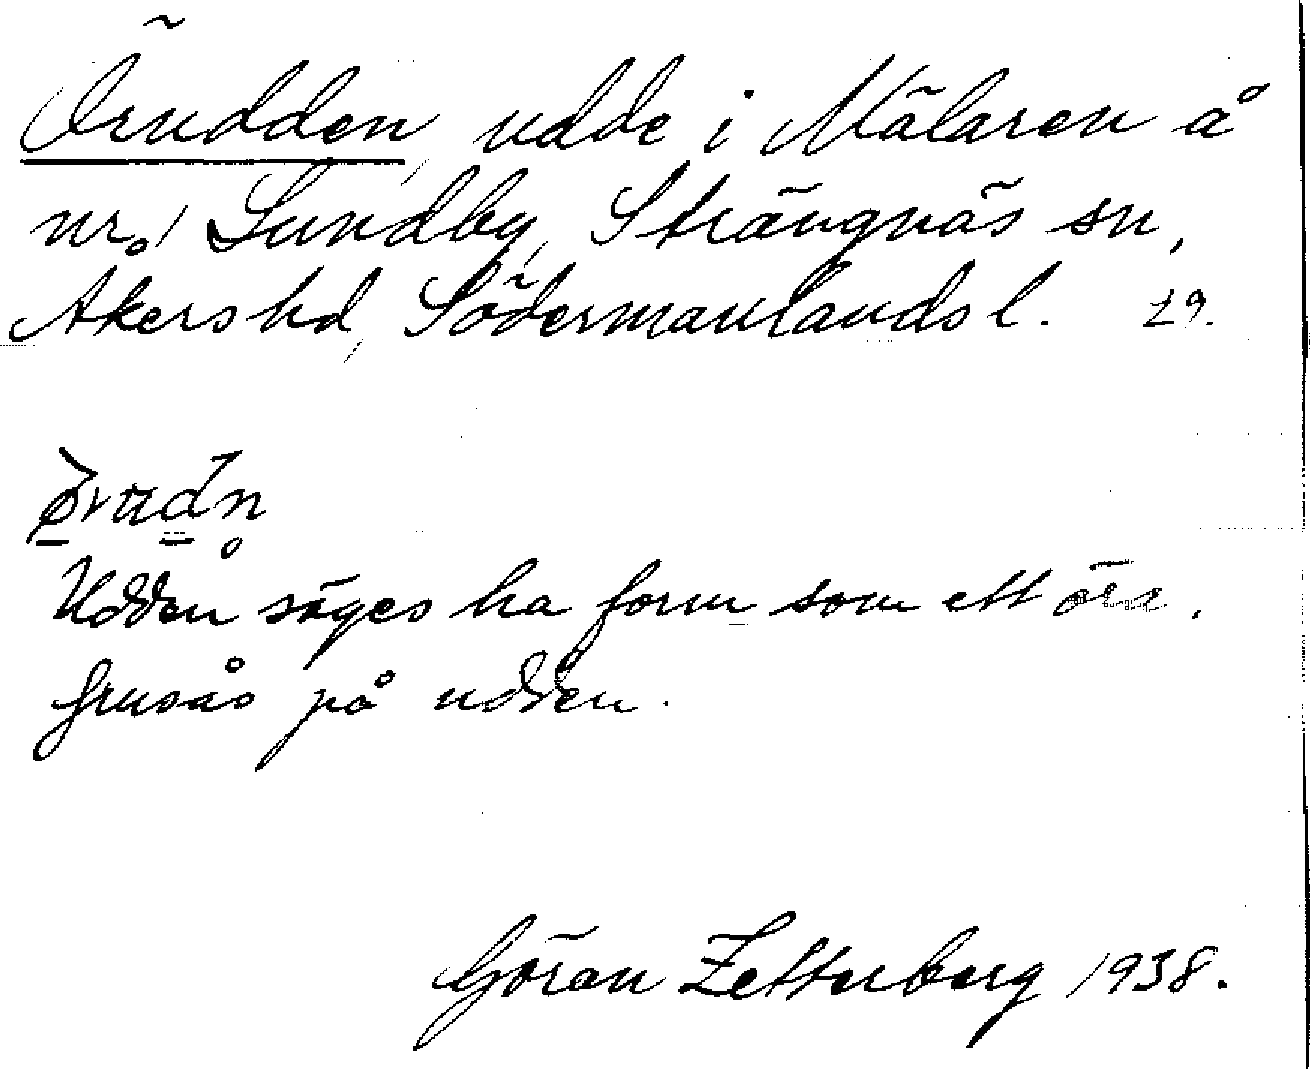 Örudden, udde i Mälaren å
nr. 1 Lundby, Strängnäs sn,
Åkers hd, Södermanlands l. 29.
Udden säges ha form som ett öra.
Grusås på udden.
Göran Zetterberg 1938.